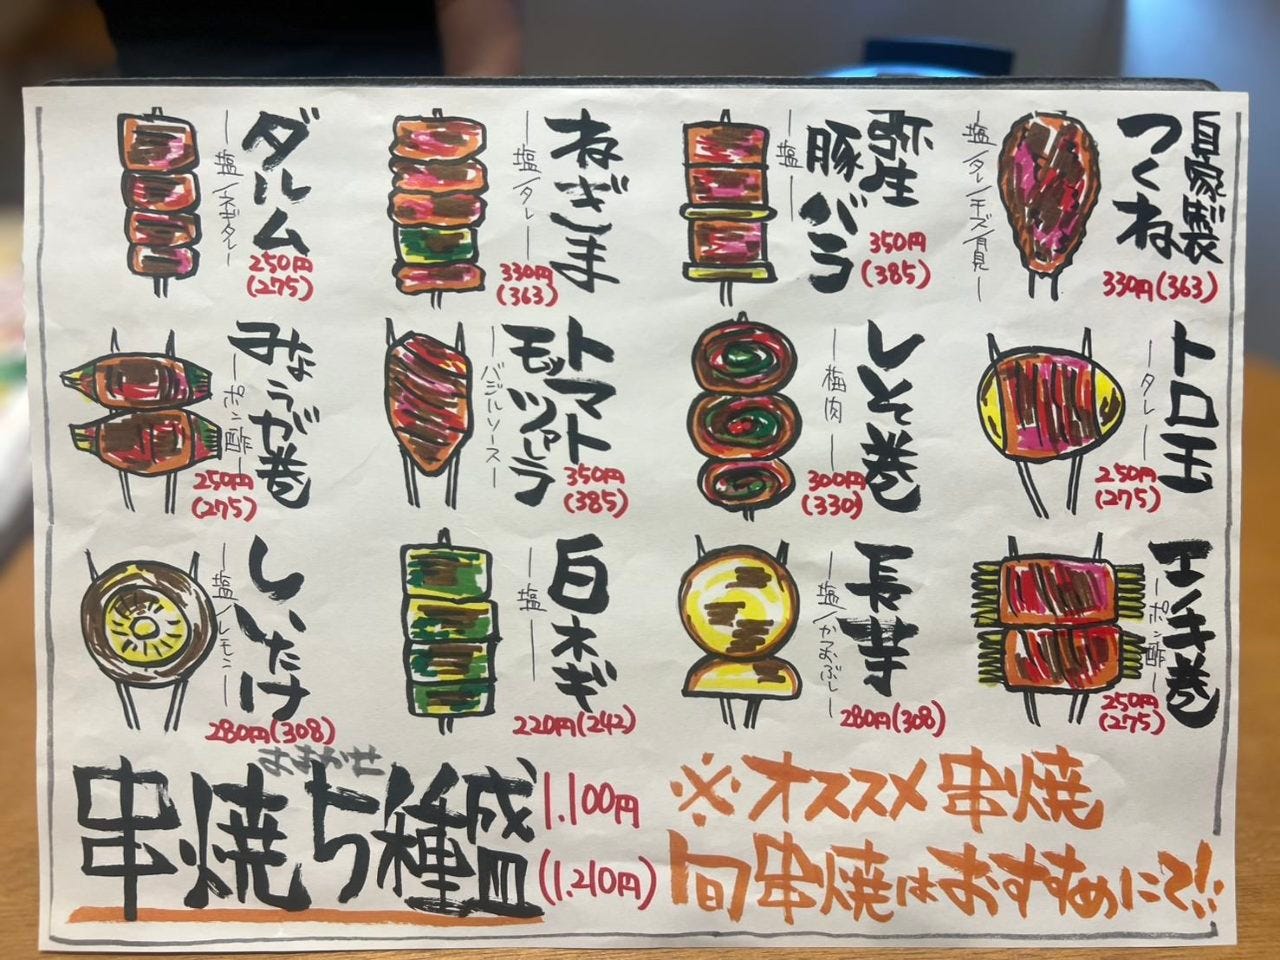 自家製
つくね
塩/タレ/チーズ/月見
330円(363)
弥生
豚バラ
塩
350円
(385)
ねぎま
塩/タレ
330円
(363)
ダルム
塩/ネギタレ
250円
(275)
トロ玉
タレ
250円
(275)
しそ巻
梅肉
300円
(330)
トマト
モッツァレラ
バジルソース
350円
(385)
みょうが巻
ポン酢
250円
(275)
エノキ巻
ポン酢
250円
(275)
長芋
塩/かつおぶし
280円(308)
白ネギ
塩
220円(242)
しいたけ
塩/レモン
280円(308)
おまかせ
串焼5種盛
1.100円
(1.210円)
※オススメ串焼
旬串焼はおすすめにて!!